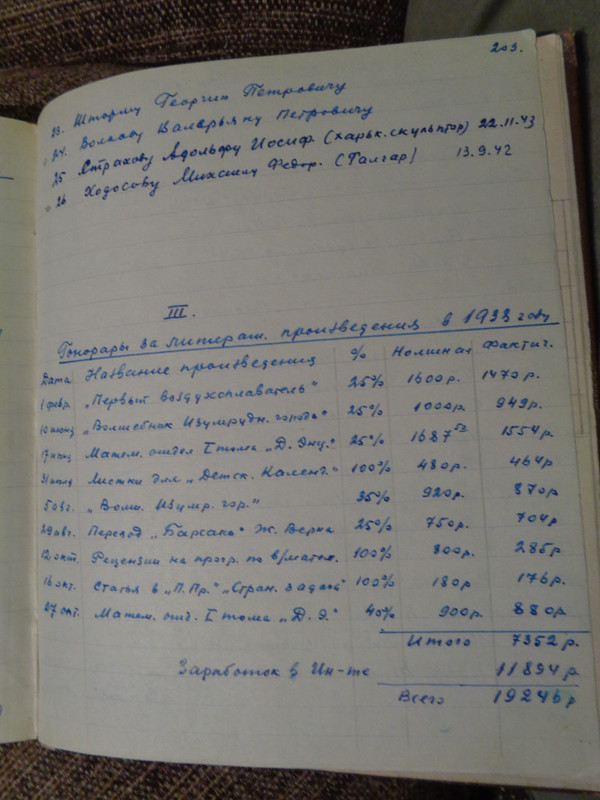 203.
23. Шторму Георгию Петровичу
24. Волкову Валерьяну Петровичу
25 Страхову Адольфу Иосиф. (харьк. скульптор) 22.11.43
26 Ходосову Михаилу Федор. (Талгар) 13.9.42
III.
Гонорары за литерат. произведения в 1938 году
Дата Название произведения % Номинал Фактич.
1 февр. „Первый воздухоплаватель" 25% 1600р. 1470р.
10 июня „Волшебник Изумрудн. города" 25% 1000р. 949р.
Матем. отдел I тома „Д. Энц." 25% 1687 53 1554р.
Листки для „Детск. Календ." 100% 480р. 464р
5 авг. „Волш. Изумр. гор." 35% 920р. 870р
29 авг. Перевод „Барсака" Ж. Верна 25% 750р. 704р
12 окт. Рецензии на прогр. по в/матем. 100% 300р. 285р
16 окт. Статья в „П.Пр." „Стран. задача" 100% 180р 176р.
27 окт. Матем. отд. I тома „Д.Э." 40% 900р. 880р
Итого 7352 р.
Заработок в Ин-те 11894 р
Всего 19246 р